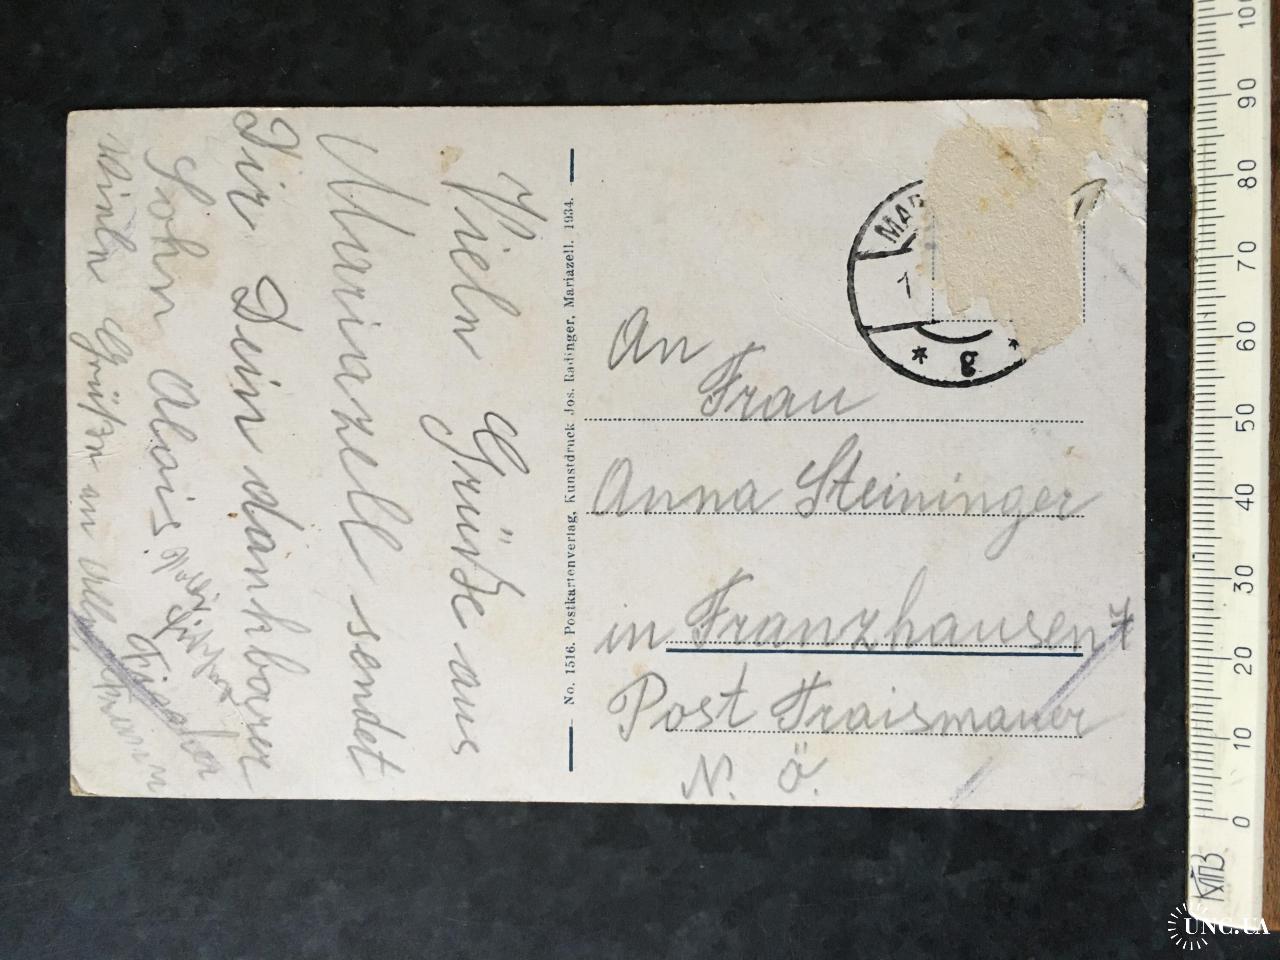 Viele Grüße aus
Mariazell sendet
Dir Dein dankbarer
Sohn Alois
viele Grüße an
No. 1516. Postkartenverlag, Kunstdruck Jos. Radinger, Mariazell. 1934.
MAR
1
* g *
An
Frau
Anna Steininger
in Franzhausen 7
Post Traismauer
N. Ö.
0 10 20 30 40 50 60 70 80 90 100
UNC.UA